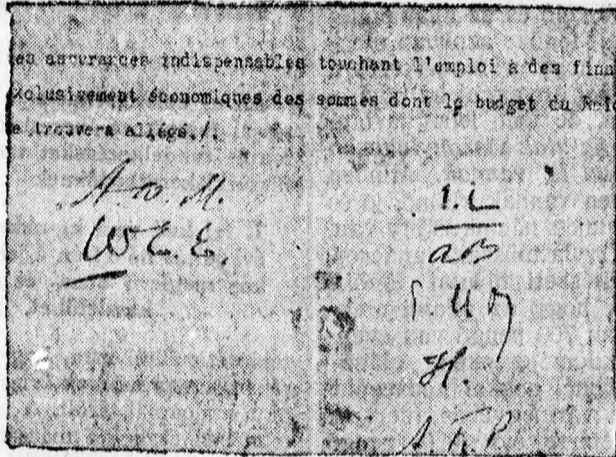 es assurances indispensables touchant l'emploi à des fina
xclusivement économiques des sommes dont le budget du Rei
e trouvera allégé./.
A. W. M.
W E. E.
P. L
aB
H.
A. R. P.